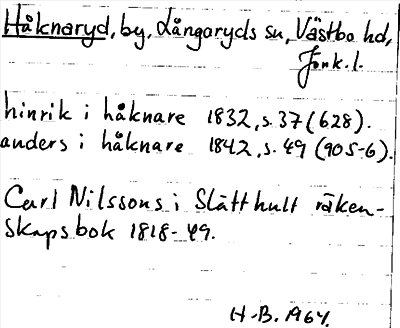 Håknaryd, by, Långaryds sn, Västbo hd,
Jönk. l.
hinrik i håknare 1832, s. 37 (628).
anders i håknare 1842, s. 49 (905-6).
Carl Nilssons i Slätthult räken-
skapsbok 1818-49.
H-B. 1964.